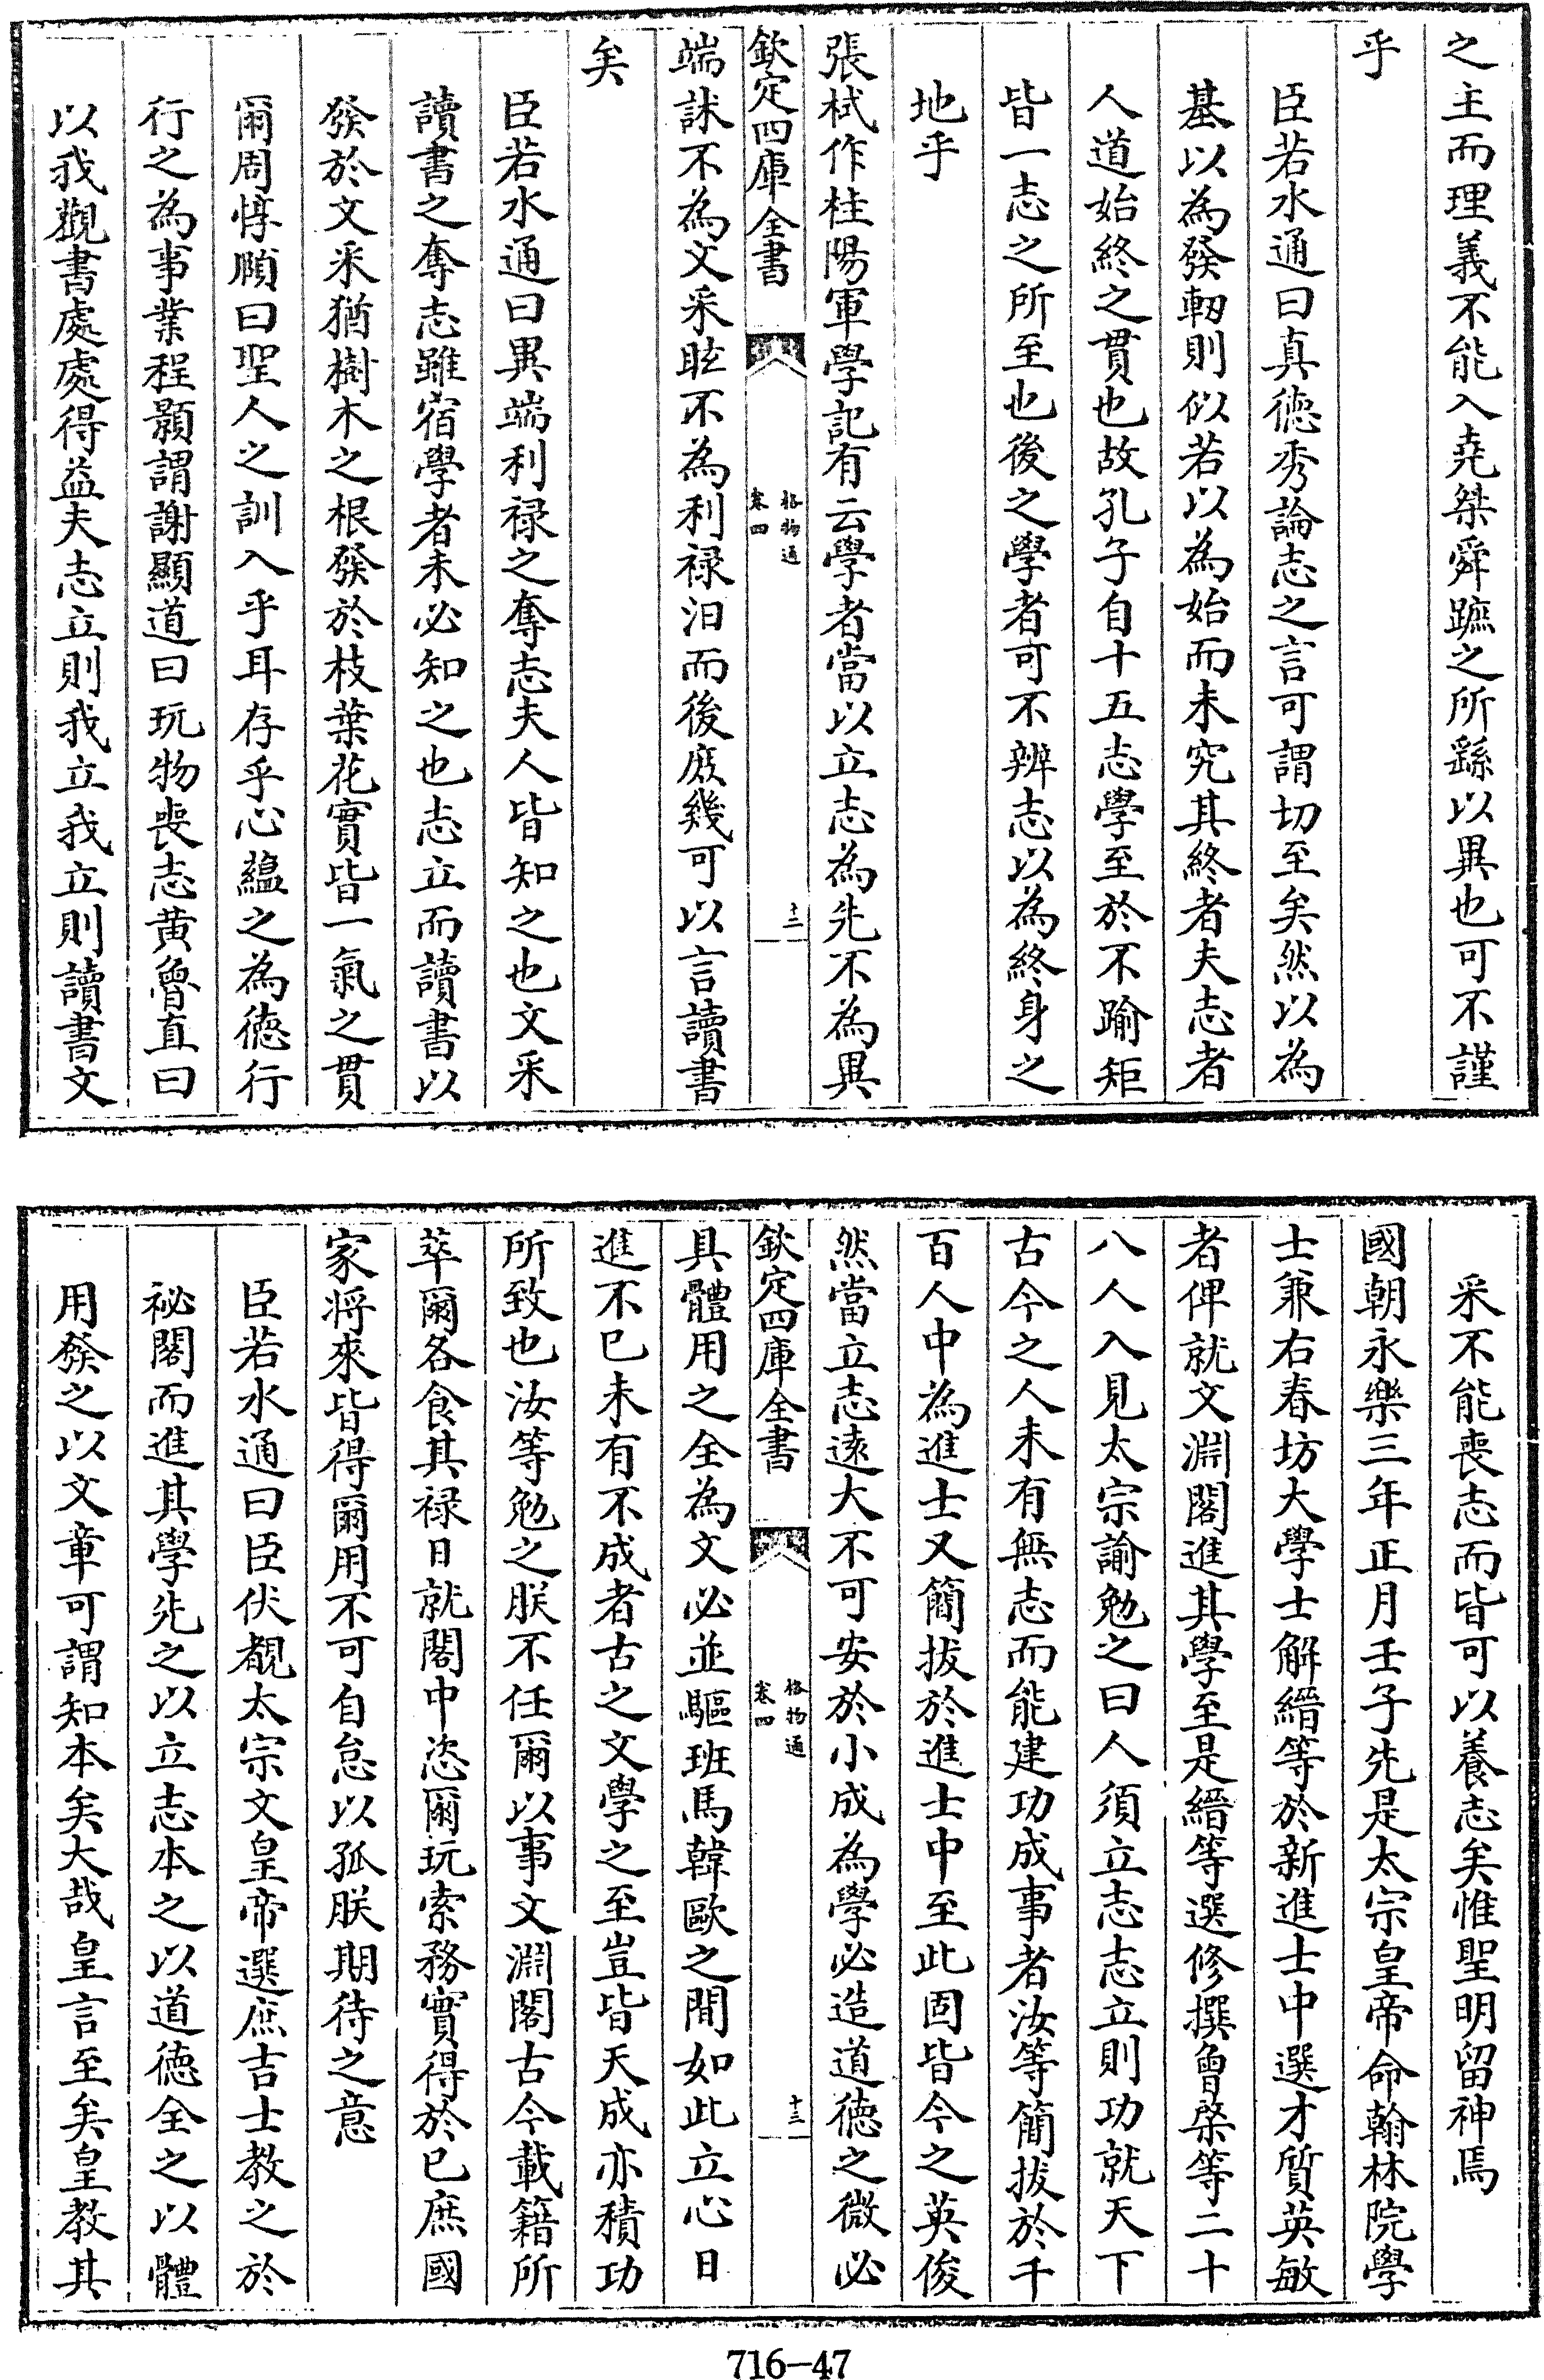 之主而理義不能入堯桀舜蹠之所繇以異也可不謹
乎
臣若水通曰真德秀論志之言可謂切至矣然以為
基以為發軔則似若以為始而未究其終者夫志者
人道始終之貫也故孔子自十五志學至於不踰矩
皆一志之所至也後之學者可不辨志以為終身之
地乎
張栻作桂陽軍學記有云學者當以立志為先不為異
欽定四庫全書
格物通
卷四
十二
端訹不為文采眩不為利禄汨而後庶幾可以言讀書
矣
臣若水通曰異端利禄之奪志夫人皆知之也文采
讀書之奪志雖宿學者未必知之也志立而讀書以
發於文采猶樹木之根發於枝葉花實皆一氣之貫
爾周惇頤曰聖人之訓入乎耳存乎心蘊之為德行
行之為事業程顥謂謝顯道曰玩物喪志黄魯直曰
以我觀書處處得益夫志立則我立我立則讀書文
采不能喪志而皆可以養志矣惟聖明留神焉
國朝永樂三年正月壬子先是太宗皇帝命翰林院學
士兼右春坊大學士解縉等於新進士中選才質英敏
者俾就文淵閣進其學至是縉等選修撰曾棨等二十
八人入見太宗諭勉之曰人須立志志立則功就天下
古今之人未有無志而能建功成事者汝等簡拔於千
百人中為進士又簡拔於進士中至此固皆今之英俊
然當立志遠大不可安於小成為學必造道德之微必
欽定四庫全書
格物通
卷四
十三
具體用之全為文必並驅班馬韓歐之間如此立心日
進不已未有不成者古之文學之至豈皆天成亦積功
所致也汝等勉之朕不任爾以事文淵閣古今載籍所
萃爾各食其禄日就閣中恣爾玩索務實得於已庶國
家將來皆得爾用不可自怠以孤朕期待之意
臣若水通曰臣伏覩太宗文皇帝選庶吉士教之於
祕閣而進其學先之以立志本之以道德全之以體
用發之以文章可謂知本矣大哉皇言至矣皇教其
716-47